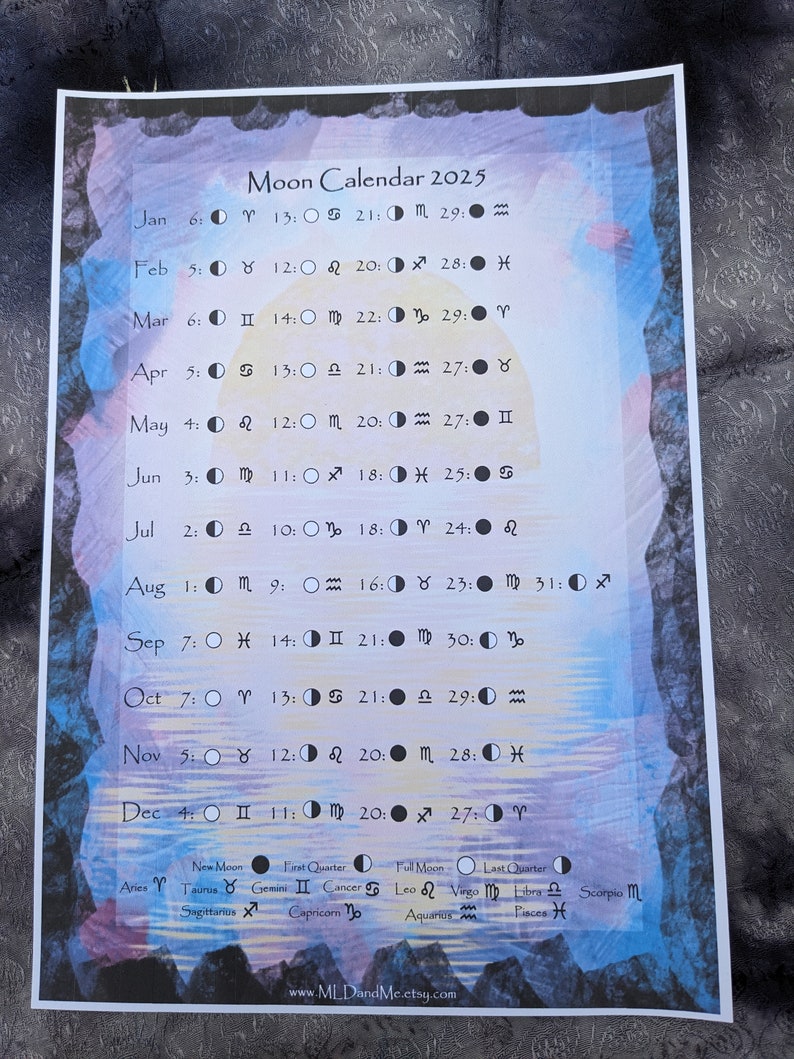 Moon Calendar 2025
Jan 6: 🌓 ♈ 13: 🌕 ♋ 21: 🌗 ♏ 29: 🌑 ♒
Feb 5: 🌓 ♉ 12: 🌕 ♌ 20: 🌗 ♐ 28: 🌑 ♓
Mar 6: 🌓 ♊ 14: 🌕 ♍ 22: 🌗 ♑ 29: 🌑 ♈
Apr 5: 🌓 ♋ 13: 🌕 ♎ 21: 🌗 ♒ 27: 🌑 ♉
May 4: 🌓 ♌ 12: 🌕 ♏ 20: 🌗 ♒ 27: 🌑 ♊
Jun 3: 🌓 ♍ 11: 🌕 ♐ 18: 🌗 ♓ 25: 🌑 ♋
Jul 2: 🌓 ♎ 10: 🌕 ♑ 18: 🌗 ♈ 24: 🌑 ♌
Aug 1: 🌓 ♏ 9: 🌕 ♒ 16: 🌗 ♉ 23: 🌑 ♍ 31: 🌓 ♐
Sep 7: 🌕 ♓ 14: 🌗 ♊ 21: 🌑 ♍ 30: 🌓 ♑
Oct 7: 🌕 ♈ 13: 🌗 ♋ 21: 🌑 ♎ 29: 🌓 ♒
Nov 5: 🌕 ♉ 12: 🌗 ♌ 20: 🌑 ♏ 28: 🌓 ♓
Dec 4: 🌕 ♊ 11: 🌗 ♍ 20: 🌑 ♐ 27: 🌗 ♈
New Moon 🌑 First Quarter 🌓 Full Moon 🌕 Last Quarter 🌗
Aries ♈ Taurus ♉ Gemini ♊ Cancer ♋ Leo ♌ Virgo ♍ Libra ♎ Scorpio ♏
Sagittarius ♐ Capricorn ♑ Aquarius ♒ Pisces ♓
www.MLDandMe.etsy.com